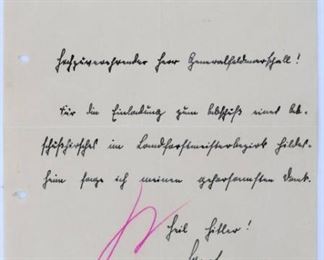 Hochzuverehrender Herr Generalfeldmarschall!
Für die Einladung zum Abschuß eines Ab-
schußhirsches im Landforstmeisterbezirk Hildes-
heim sage ich meinen gehorsamsten Dank.
Heil Hitler!